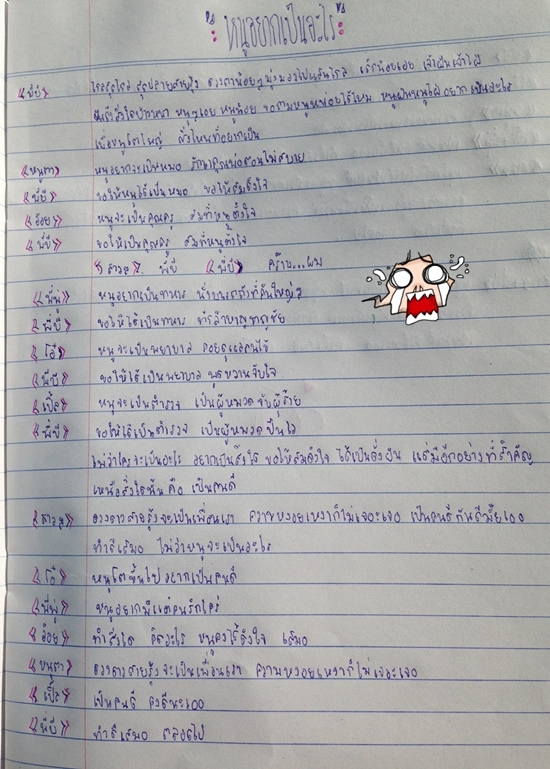 หนูอยากเป็นอะไร
«พี่บี» ไกลสุดไกล สุดปลายสายรุ้ง ดวงตาน้อยๆมุ่งมองไปแสนไกล เด็กน้อยเอย เจ้าฝันเจ้าใฝ่
ถึงสิ่งใดบ้างหนา หนูๆเอย หนูน้อย ขอถามหนูหน่อยได้ไหม หนูฝันหนูใฝ่อยากเป็นอะไร
เมื่อหนูโตใหญ่ สิ่งไหนที่อยากเป็น
«หนูตา» หนูอยากจะเป็นหมอ รักษาคุณพ่อตอนไม่สบาย
«พี่บี» ขอให้หนูได้เป็นหมอ ขอให้สมดั่งใจ
«อ้อย» หนูจะเป็นคุณครู สมที่หนูตั้งใจ
«พี่บี» ขอให้เป็นคุณครู สมที่หนูตั้งใจ
«สาวๆ» พี่บี «พี่บี» คร้าบ...ผม
«พี่พู่» หนูอยากเป็นทหาร
«พี่บี» ขอให้ได้เป็นทหาร ที่กล้าหาญชาญชัย
«โอ๋» หนูจะเป็นพยาบาล คอยดูแลคนไข้
«พี่บี» ขอให้ได้เป็นพยาบาล พูดหวานจับใจ
«เปิ้ล» หนูจะเป็นตำรวจ เป็นผู้หมวดจับผู้ร้าย
«พี่บี» ขอให้ได้เป็นตำรวจ เป็นผู้หมวดปืนไว
ไม่ว่าใครจะเป็นอะไร อยากเป็นสิ่งใด ขอให้สมดั่งใจ ได้เป็นดั่งฝัน แต่มีอีกอย่างที่สำคัญ
เหนือสิ่งใดนั้นคือ เป็นคนดี
«สาวๆ» ดวงดาวสายรุ้งจะเป็นเพื่อนเรา ความหงอยเหงาก็ไม่เจอะเจอ เป็นคนดีกันดีมั้ยเออ
ทำดีเสมอ ไม่ว่าหนูจะเป็นอะไร
«โอ๋» หนูโตขึ้นไปอยากเป็นคนดี
«พี่พู่» หนูอยากมีแต่คนรักใคร่
«อ้อย» ทำสิ่งใด คิดอะไร หนูคงไว้ดั่งใจ เสมอ
«หนูตา» ดวงดาวสายรุ้งจะเป็นเพื่อนเรา ความหงอยเหงาก็ไม่เจอะเจอ
«เปิ้ล» เป็นคนดี ดีนะเออ
«พี่บี» ทำดีเสมอ ตลอดไป